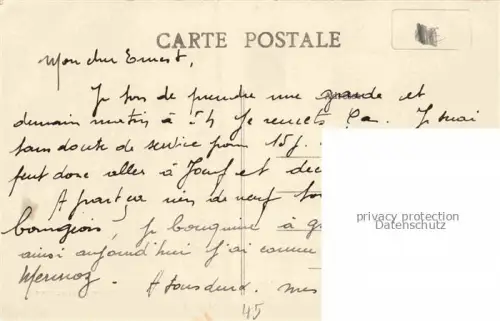 CARTE POSTALE
Mon cher Ernest,
Je sors de prendre une grande et
demain matin à 5h je remets ça. Je serai
sans doute de service pour 15 j.
peut donc aller à Joeuf et
A part ça rien de neuf
bourgeois, je bouquine à
ainsi aujourd'hui j'ai connu
Mermoz.
privacy protection
Datenschutz
45